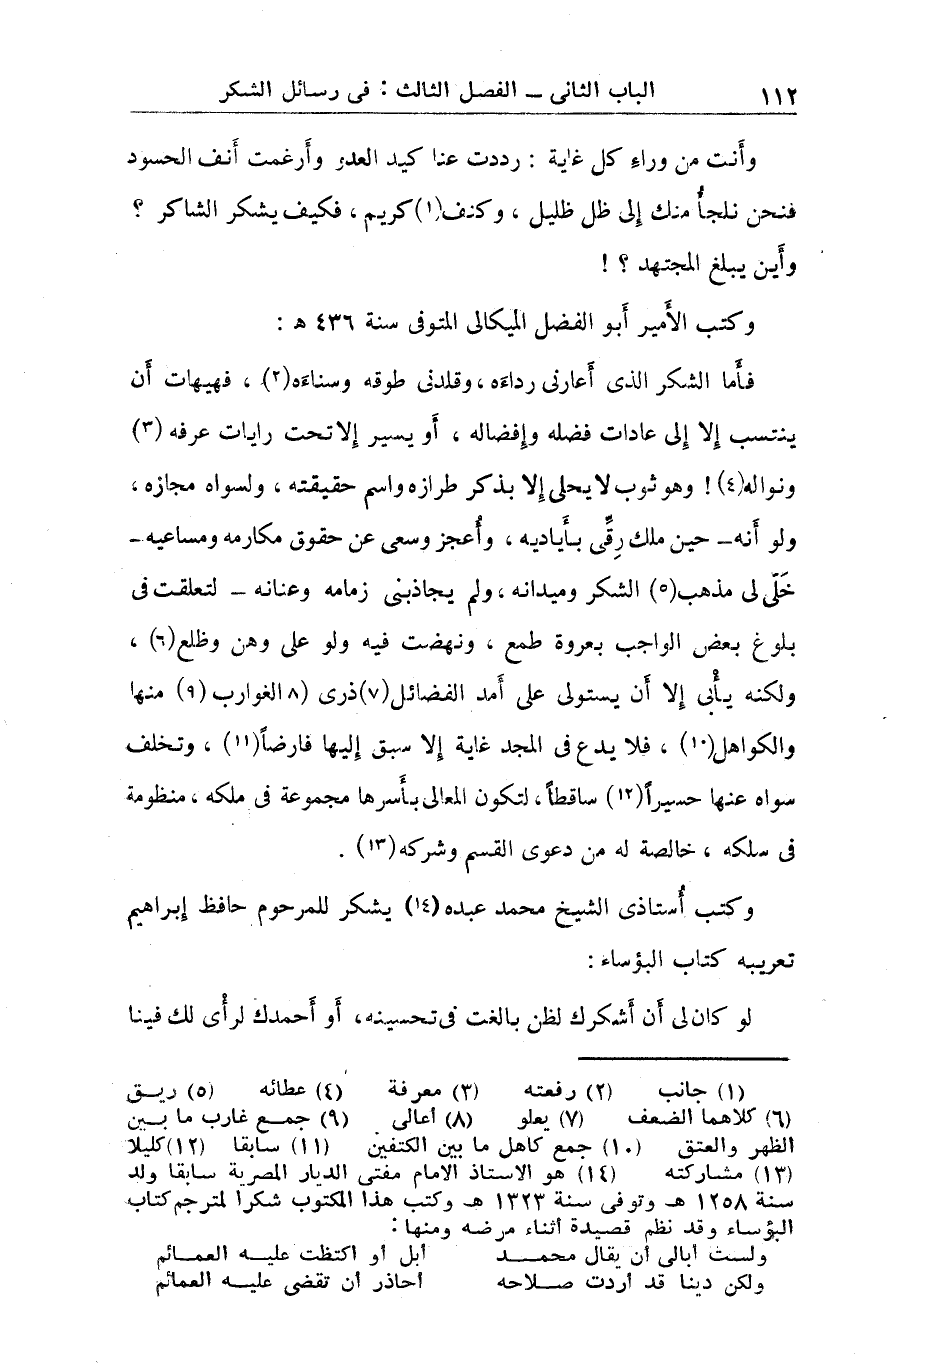 ١١٢ الباب الثانى — الفصل الثالث : فى رسائل الشكر
وأنت من وراء كل غاية : رددت عنا كيد العدو وأرغمت أنف الحسود
فنحن نلجأ منك إلى ظل ظليل ، وكنف(١) كريم ، فكيف يشكر الشاكر ؟
وأين يبلغ المجتهد ؟ !
وكتب الأمير أبو الفضل الميكالى المتوفى سنة ٤٣٦ ه :
فأما الشكر الذى أعارنى رداءه ، وقلدنى طوقه وسناءه(٢) ، فهيهات أن
ينتسب إلا إلى عادات فضله وإفضاله ، أو يسير إلا تحت رايات عرفه (٣)
ونواله(٤) ! وهو ثوب لا يحلى إلا بذكر طرازه واسم حقيقته ، ولسواه مجازه ،
ولو أنه — حين ملك رِقِّى بأياديه ، وأعجز وسعى عن حقوق مكارمه ومساعيه —
خَلّى لى مذهب(٥) الشكر وميدانه ، ولم يجاذبنى زمامه وعنانه — لتعلقت فى
بلوغ بعض الواجب بعروة طمع ، ونهضت فيه ولو على وهن وظلع(٦) ،
ولكنه يأبى إلا أن يستولى على أمد الفضائل(٧) ذرى (٨ الغوارب (٩) منها
والكواهل(١٠) ، فلا يدع فى المجد غاية إلا سبق إليها فارضاً(١١) ، وتخلف
سواه عنها حسيراً(١٢) ساقطاً ، لتكون المعالى بأسرها مجموعة فى ملكه ، منظومة
فى سلكه ، خالصة له من دعوى القسم وشركه(١٣) .
وكتب أُستاذى الشيخ محمد عبده (١٤) يشكر للمرحوم حافظ إبراهيم
تعريبه كتاب البؤساء :
لو كان لى أن أشكرك لظن بالغت فى تحسينه ، أو أحمدك لرأى لك فينا
(١) جانب (٢) رفعته (٣) معرفة (٤) عطائه (٥) ريق
(٦) كلاهما الضعف (٧) يعلو (٨) أعالى (٩) جمع غارب ما بين
الظهر والعتق (١٠) جمع كاهل ما بين الكتفين (١١) سابقا (١٢) كليلا
(١٣) مشاركته (١٤) هو الاستاذ الامام مفتى الديار المصرية سابقا ولد
سنة ١٢٥٨ هـ وتوفى سنة ١٣٢٣ هـ وكتب هذا المكتوب شكرا لمترجم كتاب
البؤساء وقد نظم قصيدة أثناء مرضه ومنها :
ولست أبالى أن يقال محمد أبل أو اكتظت عليه العمائم
ولكن دينا قد أردت صلاحه أحاذر أن تقضى عليه العمائم